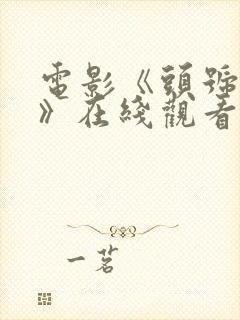 電影《頭號
》在綫觀看
一茗